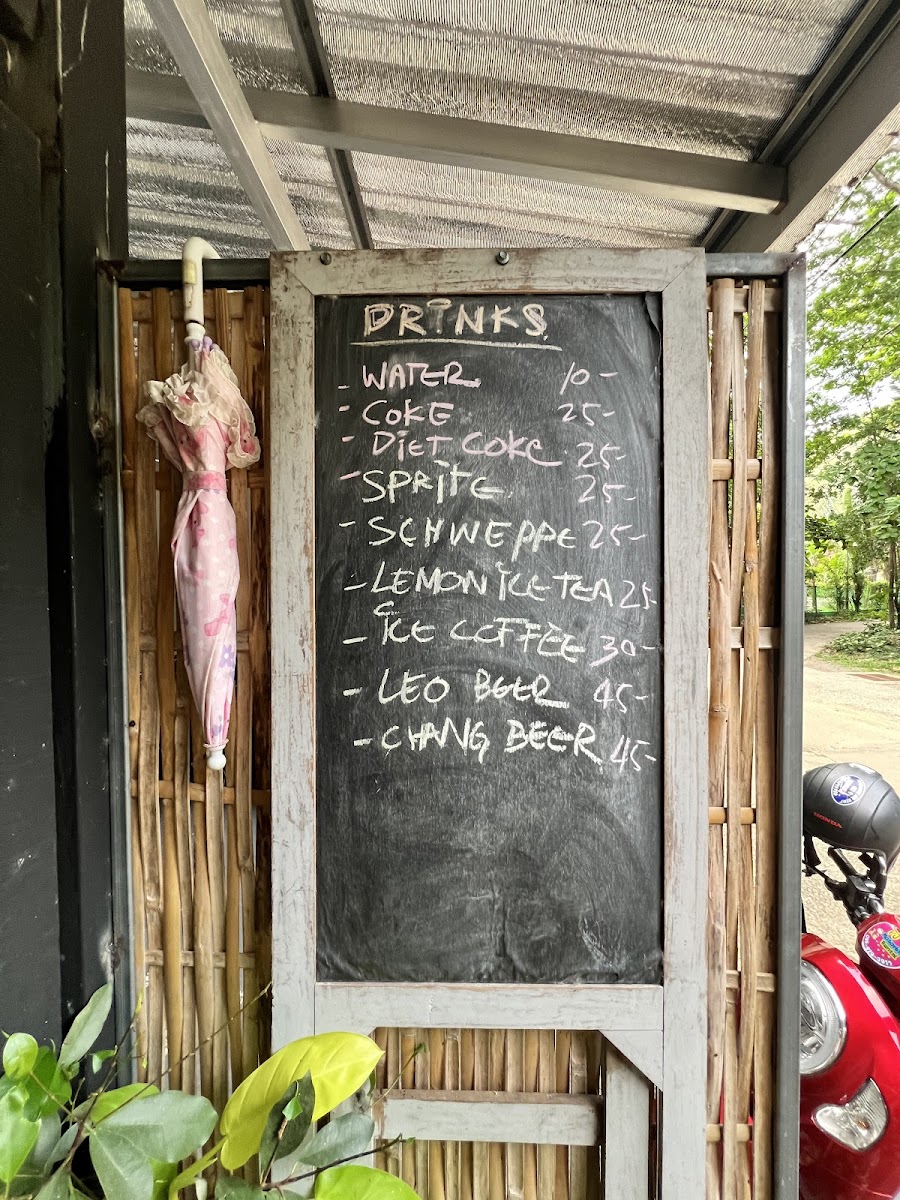 DRINKS
- WATER 10-
- COKE 25-
- DIET COKE 25-
- SPRITE 25-
- SCHWEPPE 25-
- LEMON ICE TEA 25-
- ICE COFFEE 30-
- LEO BEER 45-
- CHANG BEER 45-
HONDA